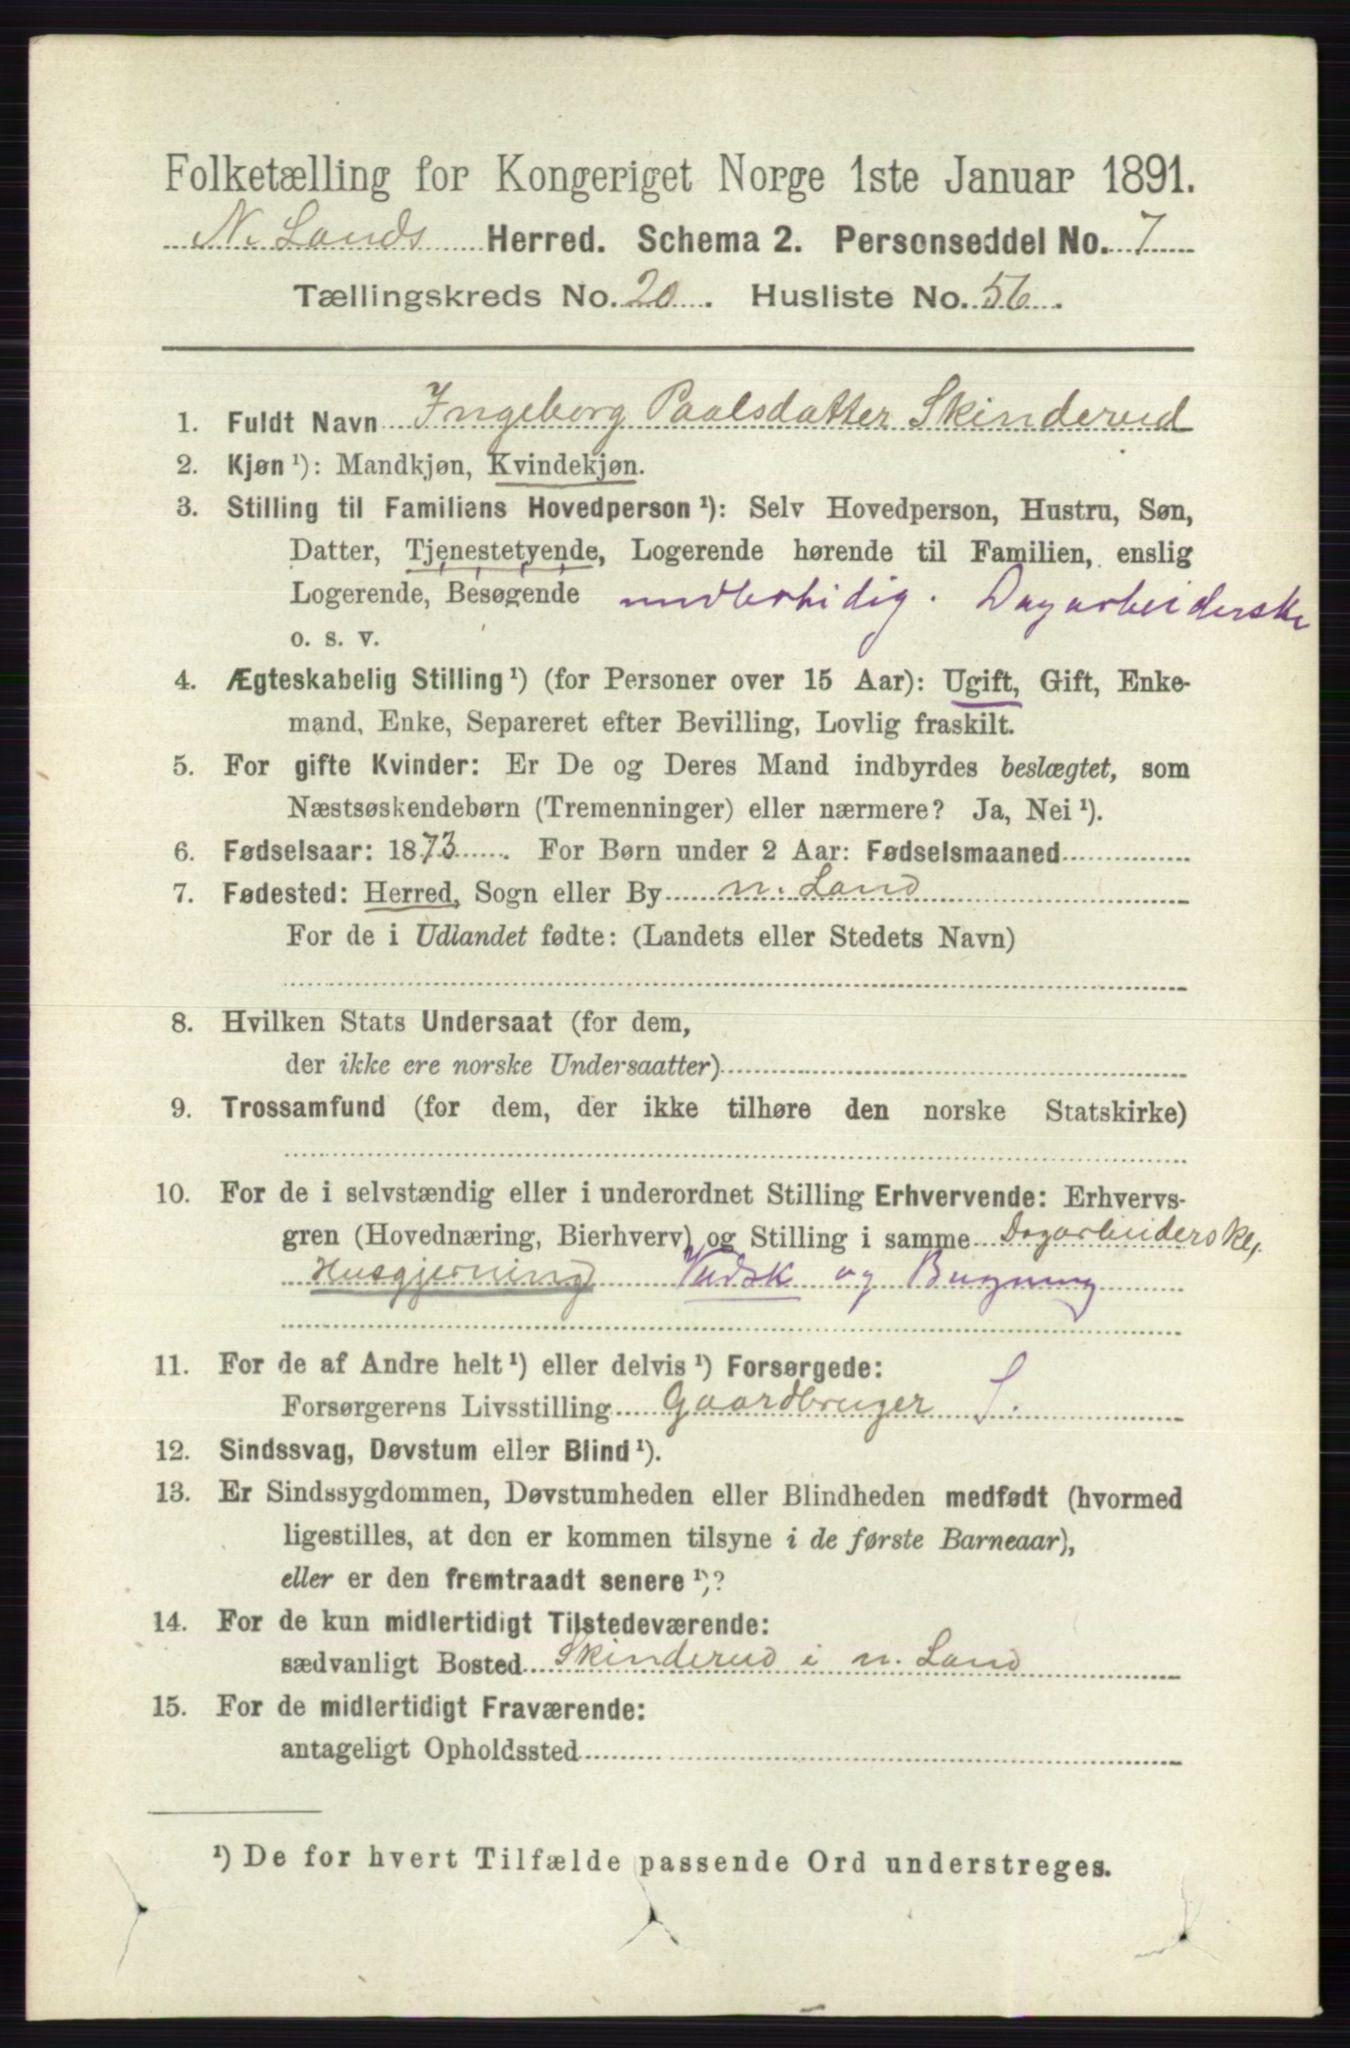 Folketælling for Kongeriget Norge 1ste Januar 1891.
N. Lands Herred. Schema 2. Personseddel No. 7
Tællingskreds No. 20. Husliste No. 56.
1. Fuldt Navn Ingeborg Paalsdatter Skinderud
2. Kjøn ¹): Mandkjøn, Kvindekjøn.
3. Stilling til Familiens Hovedperson ¹): Selv Hovedperson, Hustru, Søn,
Datter, Tjenestetyende, Logerende hørende til Familien, enslig
Logerende, Besøgende midlertidig. Dagarbeiderske
o. s. v.
4. Ægteskabelig Stilling ¹) (for Personer over 15 Aar): Ugift, Gift, Enke-
mand, Enke, Separeret efter Bevilling, Lovlig fraskilt.
5. For gifte Kvinder: Er De og Deres Mand indbyrdes beslægtet, som
Næstsøskendebørn (Tremenninger) eller nærmere? Ja, Nei ¹).
6. Fødselsaar: 1873. For Børn under 2 Aar: Fødselsmaaned
7. Fødested: Herred, Sogn eller By n. Land
For de i Udlandet fødte: (Landets eller Stedets Navn)
8. Hvilken Stats Undersaat (for dem,
der ikke ere norske Undersaatter)
9. Trossamfund (for dem, der ikke tilhøre den norske Statskirke)
10. For de i selvstændig eller i underordnet Stilling Erhvervende: Erhvervs-
gren (Hovednæring, Bierhverv) og Stilling i samme Dagarbeiderske,
Husgjerning Vadsk og
11. For de af Andre helt ¹) eller delvis ¹) Forsørgede:
Forsørgerens Livsstilling Gaardbruger S.
12. Sindssvag, Døvstum eller Blind ¹).
13. Er Sindssygdommen, Døvstumheden eller Blindheden medfødt (hvormed
ligestilles, at den er kommen tilsyne i de første Barneaar),
eller er den fremtraadt senere ¹)?
14. For de kun midlertidigt Tilstedeværende:
sædvanligt Bosted Skinderud i n. Land
15. For de midlertidigt Fraværende:
antageligt Opholdssted
¹) De for hvert Tilfælde passende Ord understreges.